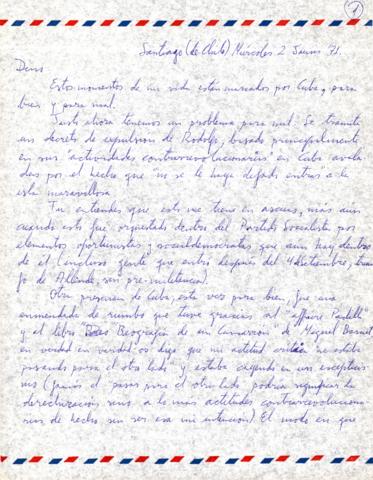 1
Santiago (de Chile) Miércoles 2 Junio 71.
Estos momentos de mi vida están marcados por Cuba, para
bien y para mal.
Justo ahora tenemos un problema para mal. Se tramita
un decreto de expulsión de Rodolfo, basado principalmente
en sus "actividades contrarrevolucionarias" en Cuba avala
das por el hecho que no se le haya dejado entrar a la
isla maravillosa.
Tú entiendes que esto me tiene en ascuas, más aún
cuando esto fué orquestado dentro del Partido Socialista por
elementos oportunistas y socialdemócratas que aún hay dentro
de él (incluso gente que entró después del 4 Setiembre, triun
fo de Allende, son pre-militancia).
Otra presencia de Cuba, esta vez para bien, fue una
enmendada de rumbo que tuve gracias al "affaire Padilla"
y el libro "Biografía de un Cimarrón" de Miguel Barnet
en verdad en verdad os digo que mi actitud crítica me estaba
pasando para el otro lado y estaba cayendo en un escepticis-
mo (jamás el pasar para el otro lado podría significar la
derechización sino a lo más actitudes contrarrevoluciona-
rias de hecho sin ser esa mi intención) El modo en que